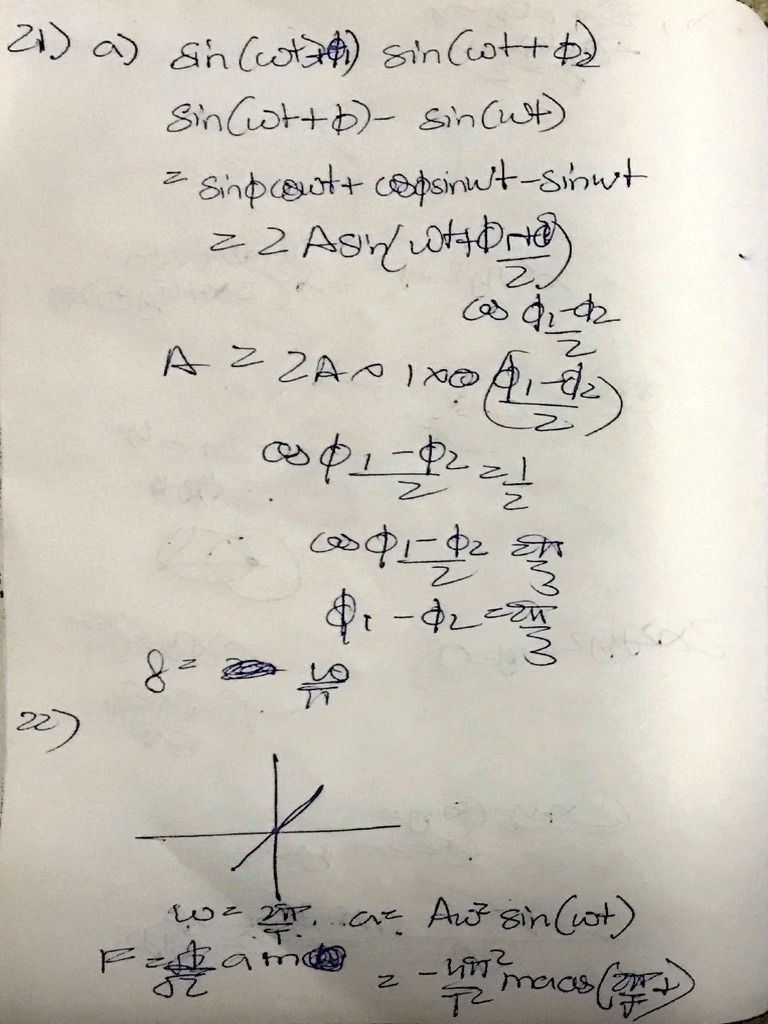 21) a) sin(ωt+ϕ1) sin(ωt+ϕ2)
sin(ωt+ϕ) - sin(ωt)
= sinϕcosωt + cosϕsinωt - sinωt
= 2 A sin(ωt+ϕ1+ϕ/2)
cos ϕ1-ϕ2/2
A = 2A × 1 × cos(ϕ1-ϕ2/2)
cos ϕ1-ϕ2/2 = 1/2
cos ϕ1-ϕ2/2 = 2π/3
ϕ1 - ϕ2 = 2π/3
ω/π
22)
ω = 2π/T. a = Aω² sin(ωt)
F = a m = -4π²/T² m a cos(2π/T t)